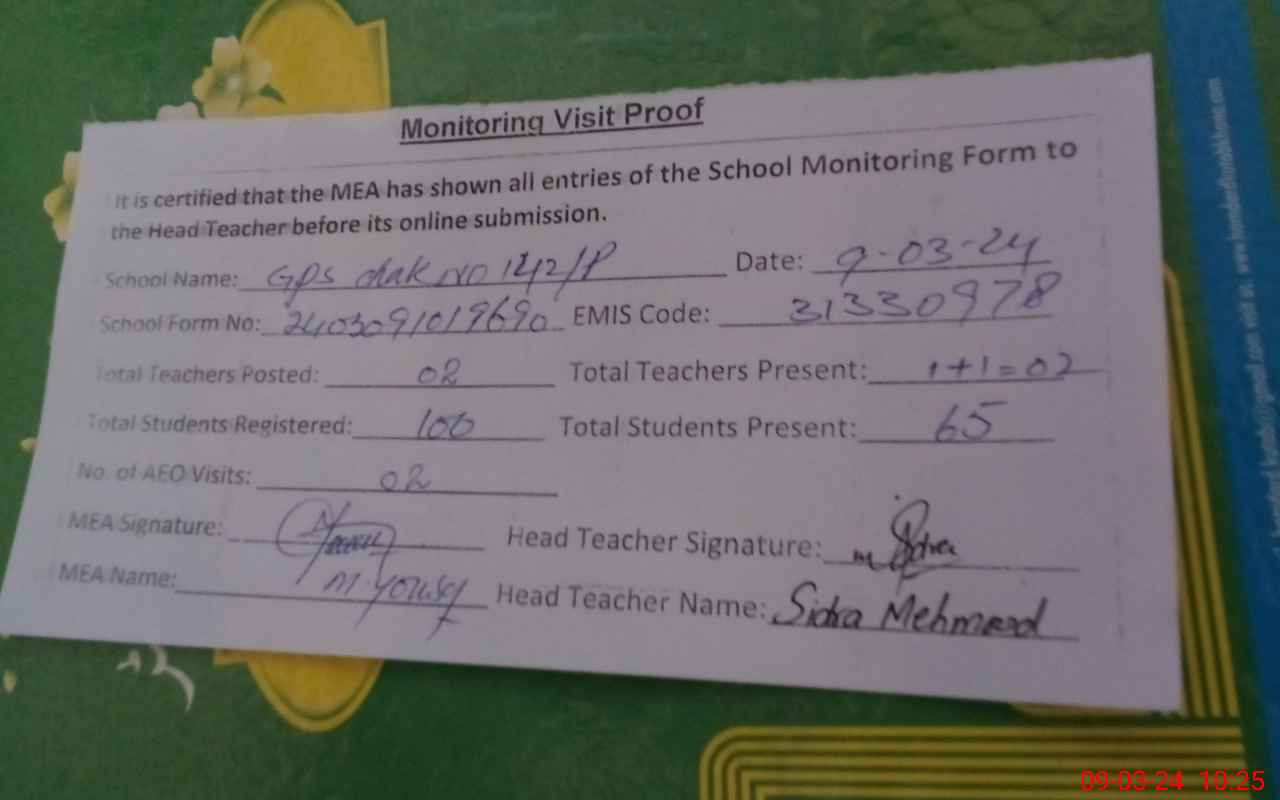 Monitoring Visit Proof
It is certified that the MEA has shown all entries of the School Monitoring Form to
the Head Teacher before its online submission.
School Name: GPS chak NO 142/P Date: 9-03-24
School Form No: 2403091019690 EMIS Code: 31330978
Total Teachers Posted: 02 Total Teachers Present: 1+1=02
Total Students Registered: 100 Total Students Present: 65
No. of AEO Visits: 02
MEA Signature: Head Teacher Signature:
MEA Name: M. Yousaf Head Teacher Name: Sidra Mehmood
09-03-24 10:25